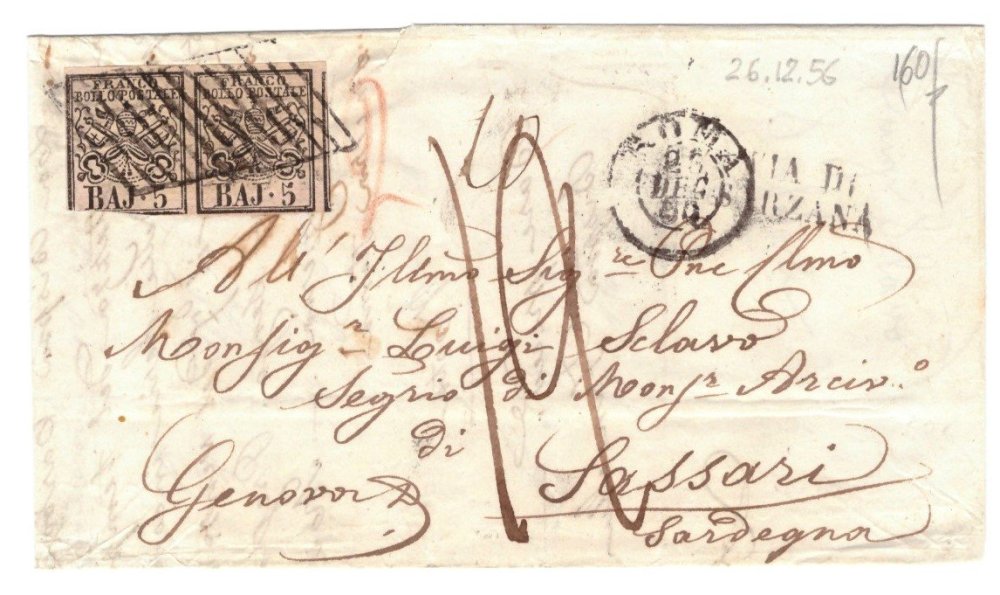 26.12.56
160/
FRANCO
BOLLO POSTALE
BAJ·5
FRANCO
BOLLO POSTALE
BAJ·5
10
ROMA
26
DEC
56
VIA DI
SARZANA
All' Illmo Sigre Pne Clmo
Monsigr Luigi Sclavo
Segrio di Monsr Arcivo
di
Genova Sassari
Sardegna